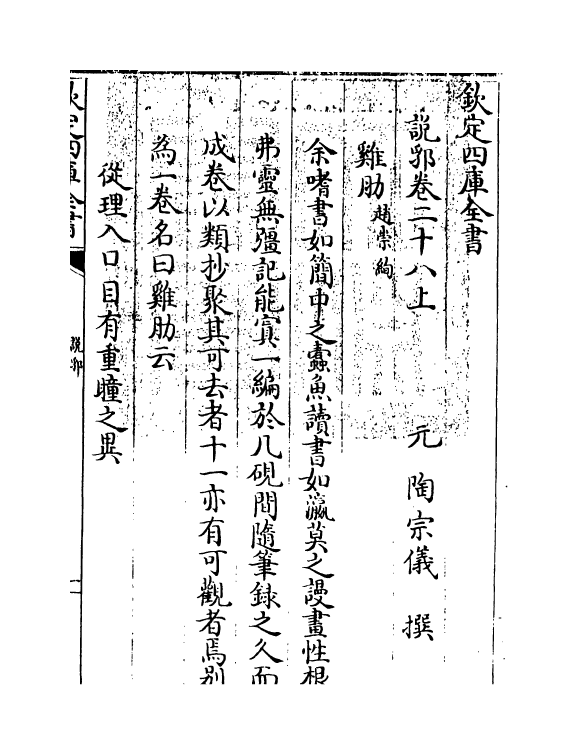 欽定四庫全書
說郛卷二十八上　元　陶宗儀　撰
雞肋趙崇絢
余嗜書如簡中之蠹魚讀書如瀛莫之謾畫性根
弗靈無彊記能寘一編於几硯間隨筆録之久而
成卷以類抄聚其可去者十一亦有可觀者焉别
為一卷名曰雞肋云
從理入口目有重瞳之異
欽定四庫全書
說郛
一